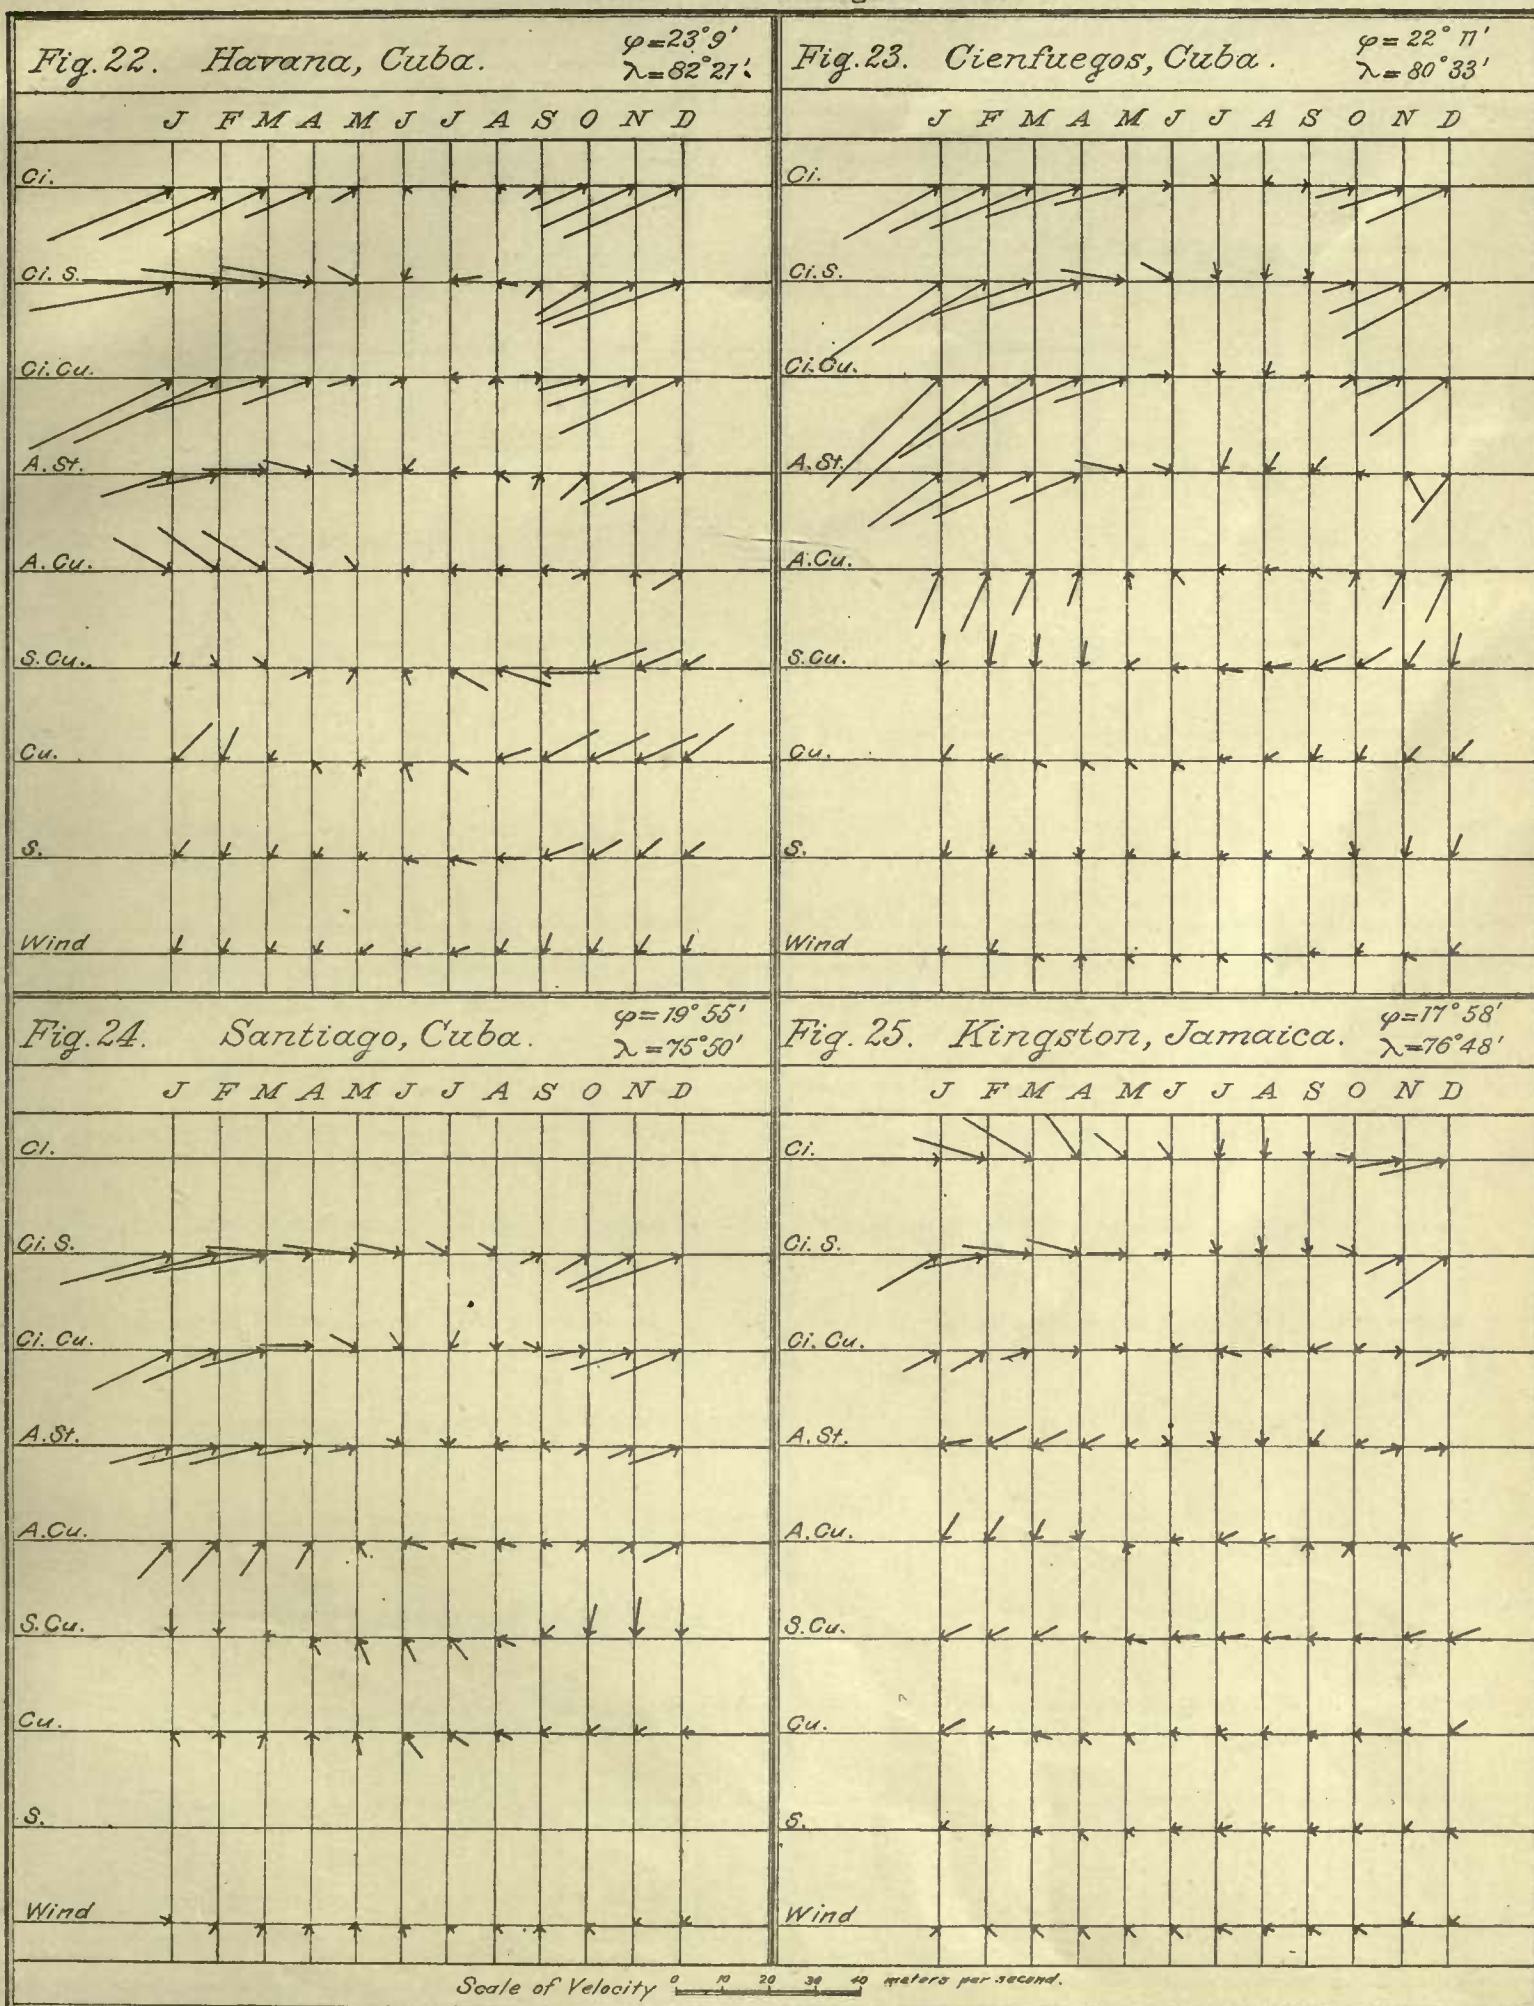 Fig. 22. Havana, Cuba. φ=23°9'
λ=82°21'.
J F M A M J J A S O N D
Ci.
Ci. S.
Ci. Cu.
A. St.
A. Cu.
S. Cu.
Cu.
S.
Wind
Fig. 23. Cienfuegos, Cuba. φ=22° 11'
λ=80°33'
J F M A M J J A S O N D
Ci.
Ci. S.
Ci. Cu.
A. St.
A. Cu.
S. Cu.
Cu.
S.
Wind
Fig. 24. Santiago, Cuba. φ=19°55'
λ=75°50'
J F M A M J J A S O N D
Ci.
Ci. S.
Ci. Cu.
A. St.
A. Cu.
S. Cu.
Cu.
S.
Wind
Fig. 25. Kingston, Jamaica. φ=17°58'
λ=76°48'
J F M A M J J A S O N D
Ci.
Ci. S.
Ci. Cu.
A. St.
A. Cu.
S. Cu.
Cu.
S.
Wind
Scale of Velocity 0 10 20 30 40 meters per second.